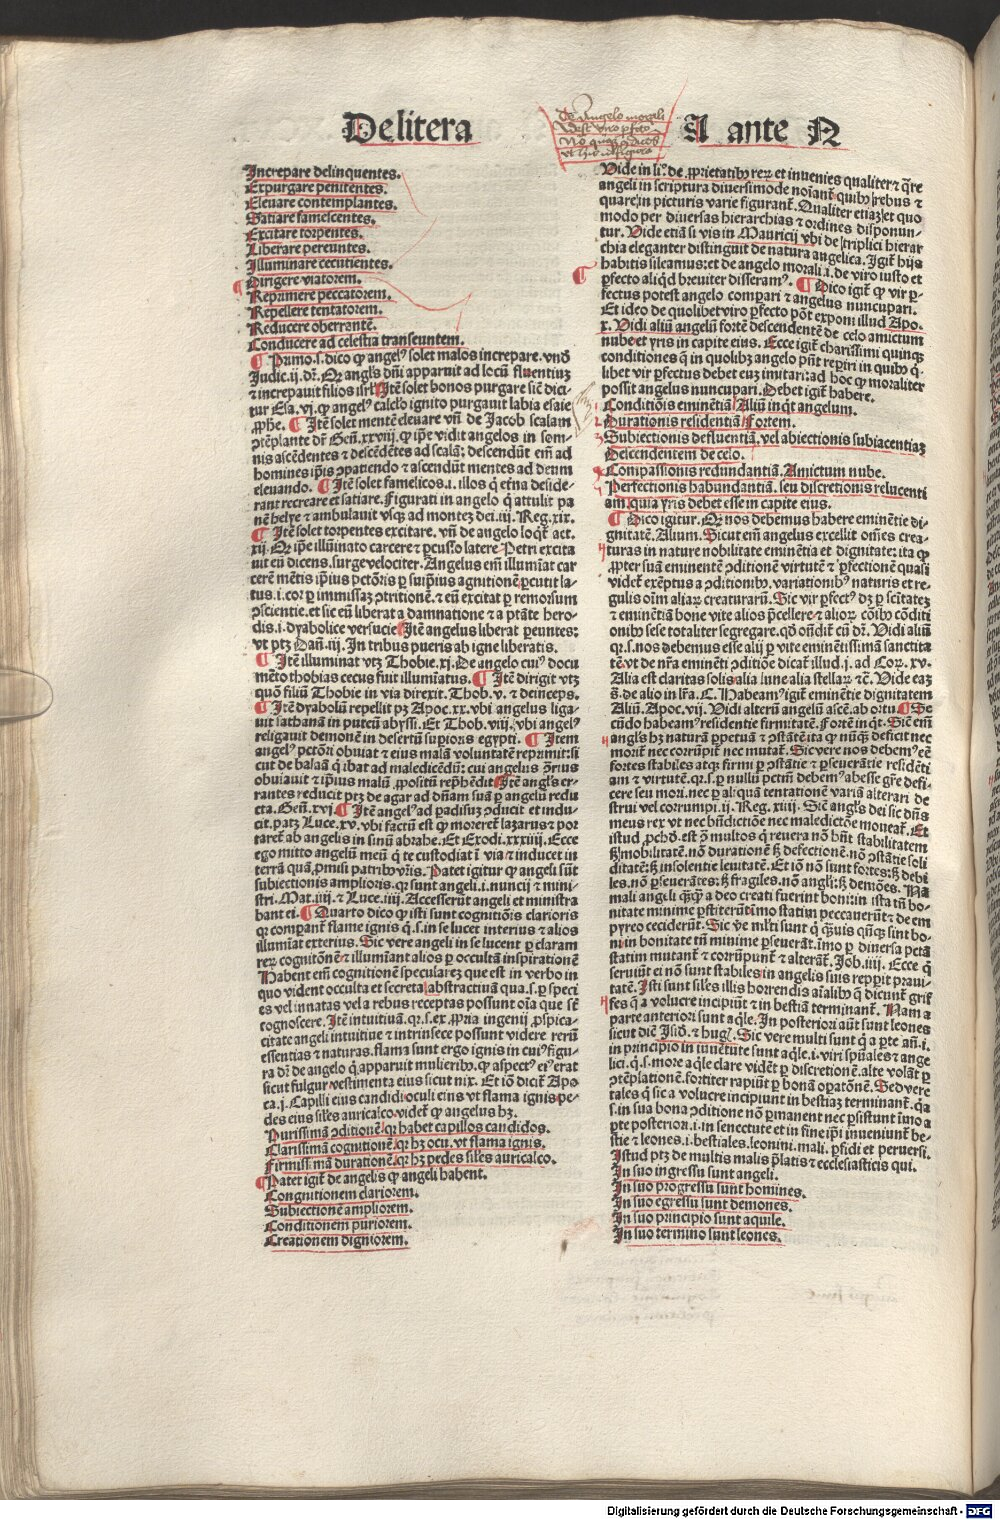 De litera
A ante N
Increpare delinquentes.
Expurgare penitentes.
Eleuare contemplantes.
Satiare famescentes.
Excitare torpentes.
Liberare pereuntes.
Illuminare cecutientes.
Dirigere viatorem.
Reprimere peccatorem.
Repellere tentatorem.
Reducere oberrantē.
Conducere ad celestia transeuntem.
¶ Primo .s. dico ꝙ angelꝰ solet malos increpare. vnđ
Judic. ij. dr̄. Qꝛ angl's dn̄i apparuit ad locū flentiuꝫ
⁊ increpauit filios isrl'. ¶ Itē solet bonos purgare sic̄ dici-
tur Esa. vj. ꝙ angelꝰ calclo ignito purgauit labia esaie
ꝓphe. ¶ Itē solet mentē eleuare vn̄ de Jacob scalam
ↄtēplante dr̄ Gen̄. xxviij. ꝙ ip̄e vidit angelos in som-
nis ascēdentes ⁊ descēdētes ad scalā: descendūt em̄ ad
homines ip̄is ↄpatiendo ⁊ ascendūt mentes ad deum
eleuando. ¶ Itē solet famelicos .i. illos q̄ et̄na deside-
rant recreare et satiare. Figurati in angelo q̄ attulit pa
nē helye ⁊ ambulauit vsqꝫ ad montez dei. iij. Reg. xix.
¶ Itē solet torpentes excitare. vn̄ de angelo loqt̄ act.
xij. Qꝛ ip̄e illūinato carcere ⁊ ꝑcusso latere Petri excita
uit eū dicens. surge velociter. Angelus em̄ illumīat car
cerē mētis ip̄ius pctōris ꝑ sui ip̄ius agnitionē ꝑcutit la-
tus .i. cor ꝑ immissaꝫ ↄtritionē. ⁊ eū excitat ꝑ remorsum
ↄscientie. et sic eū liberat a damnatione ⁊ a ptāte hero-
dis .i. dyabolice versucie. ¶ Itē angelus liberat ꝑeuntes:
vt ptꝫ Dan̄. iij. In tribus pueris ab igne liberatis.
¶ Itē illuminat vtꝫ Thobie. xj. De angelo cuiꝰ docu
mēto thobias cecus fuit illumīatus. ¶ Itē dirigit vtꝫ
quō filiū Thobie in via direxit. Thob. v. ⁊ deinceps.
¶ Itē dyabolū repellit pꝫ Apoc. xx. vbi angelus liga-
uit sathanā in puteū abyssi. Et Thob. viij. vbi angelꝰ
religauit demonē in desertū suꝑioris egypti. ¶ Item
angelꝰ pctōri obuiat ⁊ eius malā voluntatē reprimit: si
cut de balaā q̄ ibat ad maledicēdū: cui angelus ↄ̄rius
obuiauit ⁊ ip̄ius malū ꝓpositū rep̄hēdit. ¶ Itē angl's er-
rantes reducit ptꝫ de agar ad dn̄am suā ꝑ angelū redu
cta. Gen̄. xvj. ¶ Itē angelꝰ ad ꝑadisuꝫ ↄducit et indu-
cit. patꝫ Luce. xv. vbi factū est ꝙ moreret̄ lazarus ⁊ por
taret̄ ab angelis in sinū abrahe. Et Exodi. xxxiij. Ecce
ego mitto angelū meū q̄ te custodiat ī via ⁊ inducet in
terrā quā ꝓmisi patribꝰ vr̄is. Patet igitur ꝙ angeli sūt
subiectionis amplioris. qꝛ sunt angeli .i. nuncij ⁊ mini-
stri. Mat. iiij. ⁊ Luce. iiij. Accesserūt angeli et ministra
bant ei. ¶ Quarto dico ꝙ isti sunt cognitiōis clarioris
qꝛ compant̄ flame ignis q̄ .s. in se lucet interius ⁊ alios
illumīat exterius. Sic vere angeli in se lucent ꝑ claram
reꝝ cognitōnē ⁊ illumīant alios ꝑ occultā inspirationē
Habent em̄ cognitionē specularez que est in verbo in
quo vident occulta et secreta. abstractiuā qua .s. ꝑ speci
es vel innatas vel a rebus receptas possunt oīa que st̄
cognoscere. Itē intuitiuā. qꝛ .s. ex ꝓpria ingenij ꝑspica-
citate angeli intuitiue ⁊ intrinsece possunt videre rerū
essentias ⁊ naturas. flama sunt ergo ignis in cuiꝰ figu-
ra dr̄ de angelo q̄ apparuit mulieribꝰ. ꝙ aspectꝰ eiꝰ erat
sicut fulgur vestimenta eius sicut nix. Et iō dicit̄ Apo
ca. j. Capilli eius candidi oculi eius vt flama ignis pe-
des eius siles auricalco. videt̄ ꝙ angelus hꝫ.
Purissimā ↄditionē. qꝛ habet capillos candidos.
Clarissimā cognitionē. qꝛ hꝫ ocu. vt flama ignis.
Firmissimā durationē. qꝛ hꝫ pedes siles auricalco.
¶ Patet igit̄ de angelis ꝙ angeli habent.
Congnitionem clariorem.
Subiectionē ampliorem.
Conditionem puriorem.
Creationem digniorem.
Vide in li.º de ꝓprietatibꝰ reꝝ et inuenies qualiter ⁊ q̄re
angeli in scriptura diuersimode noīant̄ quibꝰ rebus ⁊
quare in picturis varie figurant̄. Qualiter etiaꝫ et quo
modo per diuersas hierarchias ⁊ ordines disponun-
tur. Vide etiā si vis in Mauricij vbi de triplici hierar
chia eleganter distinguit de natura angelica. Igit̄ hijs
habitis sileamus: et de angelo morali .i. de viro iusto et
ꝑfecto aliqd breuiter disseramꝰ. ¶ Dico igit̄ ꝙ vir ꝑ-
fectus potest angelo compari ⁊ angelus nuncupari.
Et ideo de quolibet viro ꝑfecto pōt exponi illud Apo.
x. Vidi aliū angelū fortē descendentē de celo amictum
nube et yris in capite eius. Ecce igit̄ charissimi quinqꝫ
conditiones q̄ in quolibꝫ angelo pn̄t reꝑiri in quibꝰ q̄-
libet vir ꝑfectus debet euꝫ imitari: ad hoc ꝙ moraliter
possit angelus nuncupari. Debet igit̄ habere.
Conditiōis eminentiā. Aliū inq̄t angelum.
Durationis residentiā. Fortem.
Subiectionis defluentiā. vel abiectionis subiacentiaꝫ
Descendentem de celo.
Compassionis redundantiā. Amictum nube.
Perfectionis habundantiā. seu discretionis relucenti
am. quia yris debet esse in capite eius.
¶ Dico igitur. Qꝛ nos debemus habere eminentie di-
gnitatē. Alium. Sicut em̄ angelus excellit om̄es crea-
turas in nature nobilitate eminētia et dignitate: ita ꝙ
ꝓpter suā eminentē ↄditionem virtutē ⁊ ꝑfectionē quasi
videt̄ exēptus a ↄditionibꝰ. variationibꝰ naturis et re-
gulis oīm aliaꝝ creaturarū. Sic vir ꝑfectꝰ dꝫ ꝑ sc̄itateꝫ
⁊ eminētiā bone vite alios p̄cellere ⁊ alioꝝ cōibꝰ cōditi
onibꝰ sese totaliter segregare. qd̄ oñdit̄ cū dr̄. Vidi aliū
qꝛ .s. nos debemus esse alij ꝑ vite eminentissimā sanctita
tē. vt de nr̄a eminēti ↄditiōe dicat̄ illud. j. ad Coꝝ. xv.
Alia est claritas solis alia lune alia stellaꝝ ⁊ c̄. Vide eaꝫ
s̄. de alio in lr̄a. C. Habeamꝰ igit̄ eminētie dignitatem
Aliū. Apoc. vij. Vidi alterū angelū ascē. ab ortu. ¶ Se
cūdo habeamꝰ residentie firmitatē. Fortē inq̄t. Sic̄ em̄
angl's hꝫ naturā ꝑpetuā ⁊ ↄstātē ita ꝙ nūqꝫ deficit nec
morit̄ nec corrūpit̄ nec mutat̄. Sic vere nos debemꝰ eē
fortes stabiles atqꝫ firmi ꝑ ↄstātie ⁊ ꝑseuerātie residēti
am ⁊ virtutē. qꝛ .s. ꝑ nullū pctm̄ debemꝰ abesse gr̄e defi-
cere seu mori. nec ꝑ aliquā tentationē variā alterari de
strui vel corrumpi. ij. Reg. xiiij. Sic̄ angl's dei sic dn̄s
meus rex vt nec bn̄dictiōe nec maledictōe moueat̄. Et
istud ꝓchdō. est ↄ̄ multos q̄ reuera nō hn̄t stabilitatem
sꝫ mobilitatē. nō durationē sꝫ defectionē. nō ↄstātie soli
ditatē: sꝫ insolentie leuitatē. Et iō nō sunt fortes: sꝫ debi
les. nō ꝑseuerātes: sꝫ fragiles. nō angl'i: sꝫ demōes. Nā
mali angeli qꝫqꝫ a deo creati fuerint boni: in ista tn̄ bo-
nitate minime ꝑstiterūt imo statim peccauerūt ⁊ de em
pyreo ceciderūt. Sic vē ml'ti sunt q̄ qꝫuis qn̄qꝫ sint bo-
ni in bonitate tn̄ minime ꝑseuerāt. imo ꝑ diuersa pctā
statim mutant̄ ⁊ corrūpunt̄ ⁊ alterāt̄. Job. iiij. Ecce q̄
seruiūt ei nō sunt stabiles ⁊ in angelis suis reꝑit praui-
tatē. Isti sunt siles illis horrendis aīalibꝰ q̄ dicunt̄ grif
fes q̄ a volucre incipiūt ⁊ in bestiā terminant̄. Nam a
parte anteriori sunt aq̄le. In posteriori aūt sunt leones
sicut diē Isid. ⁊ hug. Sic vere multi sunt q̄ a pte añ. .i.
in principio in iuuētute sunt aq̄le .i. viri sp̄uales ⁊ ange
lici. q̄ .s. more aq̄le clare vidēt ꝑ discretionē. alte volāt ꝑ
ↄtēplationē. fortiter rapiūt ꝑ bonā oꝑatōnē. Sed vere
tales q̄ sic a volucre incipiunt in bestiaꝫ terminant̄. q̄a
.s. in sua bona ↄditione nō ꝑmanent nec ꝑsistunt imo a
pte posteriori .i. in senectute et in fine ip̄i inueniunt̄ be-
stie ⁊ leones .i. bestiales. leonini. mali. ꝑfidi et peruersi.
Istud ptꝫ de multis malis p̄latis ⁊ ecclesiasticis qui.
In suo ingressu sunt angeli.
In suo progressu sunt homines.
In suo egressu sunt demones.
In suo principio sunt aquile.
In suo termino sunt leones.
Digitalisierung gefördert durch die Deutsche Forschungsgemeinschaft - DFG